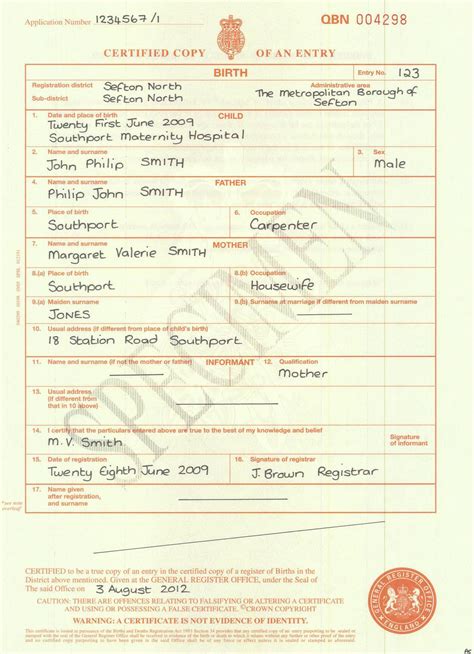 Application Number 1234567/1
QBN 004298
CERTIFIED COPY OF AN ENTRY
BIRTH
Entry No. 123
Registration district Sefton North
Administrative area
Sub-district Sefton North
The Metropolitan Borough of Sefton
1. Date and place of birth CHILD
Twenty First June 2009
Southport Maternity Hospital
2. Name and surname
3. Sex
John Philip SMITH
Male
4. Name and surname FATHER
Philip John SMITH
5. Place of birth
6. Occupation
Southport
Carpenter
7. Name and surname MOTHER
Margaret Valerie SMITH
8.(a) Place of birth
8.(b) Occupation
Southport
Housewife
9.(a) Maiden surname
9.(b) Surname at marriage if different from maiden surname
JONES
10. Usual address (if different from place of child's birth)
18 Station Road Southport
11. Name and surname (if not the mother or father) INFORMANT
12. Qualification
Mother
13. Usual address
(if different from
that in 10 above)
14. I certify that the particulars entered above are true to the best of my knowledge and belief
M.V. Smith
Signature
of informant
15. Date of registration
16. Signature of registrar
Twenty Eighth June 2009
J. Brown Registrar
17. Name given
after registration,
and surname
*see note overleaf
SPECIMEN
CERTIFIED to be a true copy of an entry in the certified copy of a register of Births in the
District above mentioned. Given at the GENERAL REGISTER OFFICE, under the Seal of
The said Office on 3 August 2012
CAUTION: THERE ARE OFFENCES RELATING TO FALSIFYING OR ALTERING A CERTIFICATE
AND USING OR POSSESSING A FALSE CERTIFICATE. ©CROWN COPYRIGHT
WARNING: A CERTIFICATE IS NOT EVIDENCE OF IDENTITY.
GENERAL REGISTER OFFICE
ENGLAND